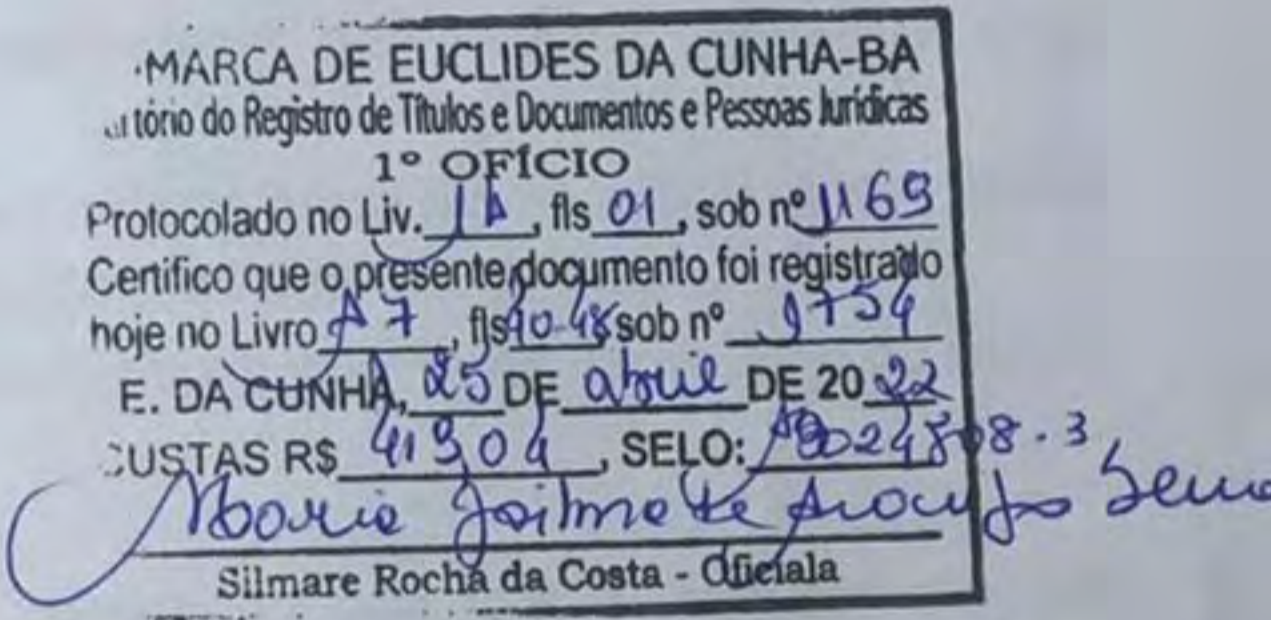 MARCA DE EUCLIDES DA CUNHA-BA
tório do Registro de Títulos e Documentos e Pessoas Jurídicas
1º OFÍCIO
Protocolado no Liv. 1A, fls 01, sob nº 1169
Certifico que o presente documento foi registrado
hoje no Livro A7, fls 40-48 sob nº 1754
E. DA CUNHA, 25 DE abril DE 2022
CUSTAS R$ 419,04, SELO: 024808-3
Maria Araujo
Silmare Rocha da Costa - Oficiala